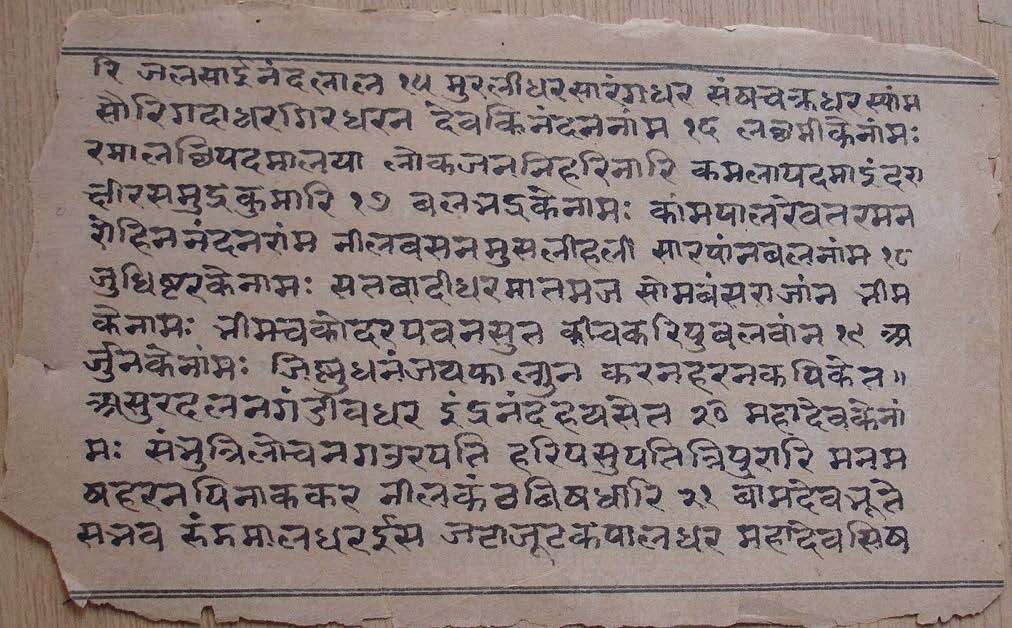 रि जलसाई नंदलाल १५ मुरलीधर सारंगधर संषचक्रधर स्यांम
सौरि गदाधर गिरधरन देवकिनंदन नाम १६ लछमीकैनांमः
रमा लछि पदमालया लोकजननि हरिनारि कमला पदमा इंदरा
छीरसमुद्रकुमारि १७ बलभद्रकेनामः कांमपाल रेवतरमन
रोहिननंदन रांम नीलबसन मुसली हली सारपांन बलनांम १८
जुधिष्टरकेनामः सतबादी धरमातमज सोमबंस राजांन भीम
केनामः भीम व्रकोदर पवनसुत कीचकरिपु बलवांन १९ अ
र्जुनकेनांमः जिष्णु धनंजय फाल्गुन करनहरन कपिकेत॥
असुरदलन गंडीवधर इंद्रनंद हयसेत २० महादेवकेनां
मः संभु त्रिलोचन गवरपति हरि पसुपति त्रिपुरारि मनम
षहरन पिनाककर नीलकंठ बिषधारि २१ बांमदेव भूते
स भव रुंडमालधर ईस जटाजूट कपालधर महादेव सिष